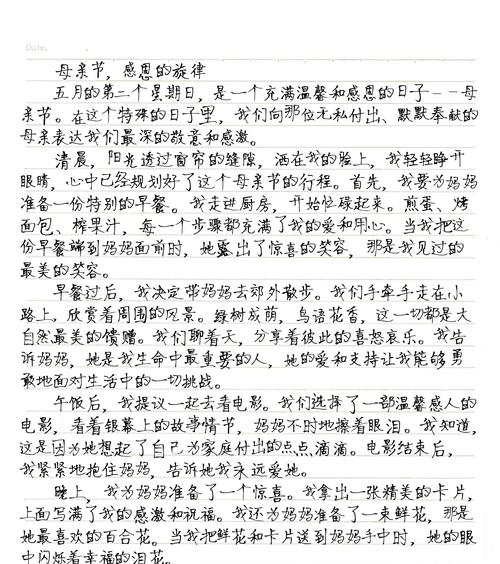 Date.
母亲节，感恩的旋律
五月的第二个星期日，是一个充满温馨和感恩的日子——母
亲节。在这个特殊的日子里，我们向那位无私付出、默默奉献的
母亲表达我们最深的敬意和感激。
清晨，阳光透过窗帘的缝隙，洒在我的脸上，我轻轻睁开
眼睛，心中已经规划好了这个母亲节的行程。首先，我要为妈妈
准备一份特别的早餐。我走进厨房，开始忙碌起来。煎蛋、烤
面包、榨果汁，每一个步骤都充满了我的爱和用心。当我把这
份早餐端到妈妈面前时，她露出了惊喜的笑容，那是我见过的
最美的笑容。
早餐过后，我决定带妈妈去郊外散步。我们手牵手走在小
路上，欣赏着周围的风景。绿树成荫，鸟语花香，这一切都是大
自然最美的馈赠。我们聊着天，分享着彼此的喜怒哀乐。我告
诉妈妈，她是我生命中最重要的人，她的爱和支持让我能够勇
敢地面对生活中的一切挑战。
午饭后，我提议一起去看电影。我们选择了一部温馨感人的
电影，看着银幕上的故事情节，妈妈不时地擦着眼泪。我知道，
这是因为她想起了自己为家庭付出的点点滴滴。电影结束后，
我紧紧地抱住妈妈，告诉她我永远爱她。
晚上，我为妈妈准备了一个惊喜。我拿出一张精美的卡片，
上面写满了我的感激和祝福。我还为妈妈准备了一束鲜花，那是
她最喜欢的百合花。当我把鲜花和卡片送到妈妈手中时，她的眼
中闪烁着幸福的泪花。